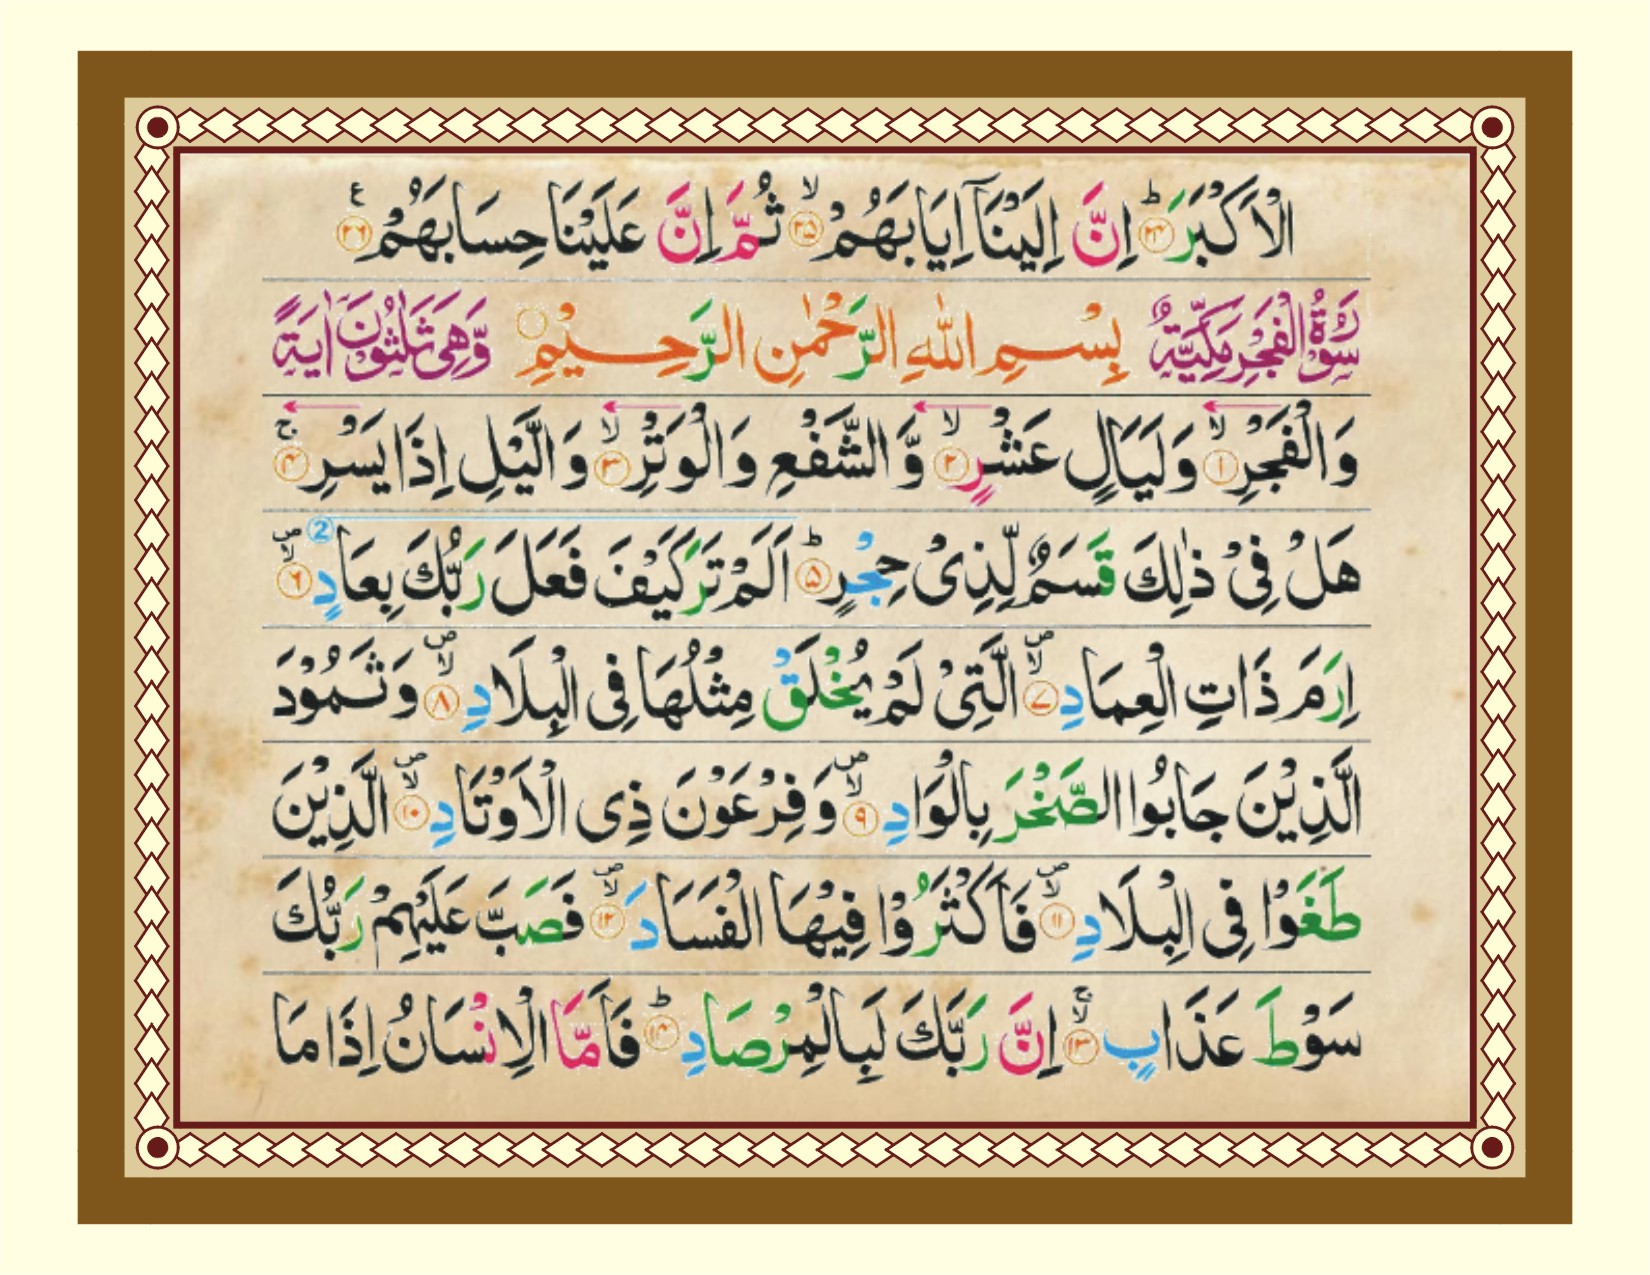 الْاَكْبَرَ ؕ ﴿۲۴﴾ اِنَّ اِلَيْنَاۤ اِيَابَهُمْ ۙ ﴿۲۵﴾ ثُمَّ اِنَّ عَلَيْنَا حِسَابَهُمْ ﴿۲۶﴾ ع
سُوْرَةُ الْفَجْرِ مَكِّيَّةٌ بِسْمِ اللّٰهِ الرَّحْمٰنِ الرَّحِيْمِ وَّهِىَ ثَلٰثُوْنَ اٰيَةً
وَالْفَجْرِ ۙ ﴿۱﴾ وَلَيَالٍ عَشْرٍ ۙ ﴿۲﴾ وَّالشَّفْعِ وَالْوَتْرِ ۙ ﴿۳﴾ وَالَّيْلِ اِذَا يَسْرِ ۚ ﴿۴﴾
هَلْ فِىْ ذٰلِكَ قَسَمٌ لِّذِىْ حِجْرٍ ؕ ﴿۵﴾ اَلَمْ تَرَ كَيْفَ فَعَلَ رَبُّكَ بِعَادٍ ② ۙ ص ﴿۶﴾
اِرَمَ ذَاتِ الْعِمَادِ ۙ ص ﴿۷﴾ الَّتِىْ لَمْ يُخْلَقْ مِثْلُهَا فِى الْبِلَادِ ۙ ص ﴿۸﴾ وَثَمُوْدَ
الَّذِيْنَ جَابُوا الصَّخْرَ بِالْوَادِ ۙ ص ﴿۹﴾ وَفِرْعَوْنَ ذِى الْاَوْتَادِ ۙ ص ﴿۱۰﴾ الَّذِيْنَ
طَغَوْا فِى الْبِلَادِ ۙ ص ﴿۱۱﴾ فَاَكْثَرُوْا فِيْهَا الْفَسَادَ ۙ ص ﴿۱۲﴾ فَصَبَّ عَلَيْهِمْ رَبُّكَ
سَوْطَ عَذَابٍ ۙ ۚ ﴿۱۳﴾ اِنَّ رَبَّكَ لَبِالْمِرْصَادِ ؕ ﴿۱۴﴾ فَاَمَّا الْاِنْسَانُ اِذَا مَا